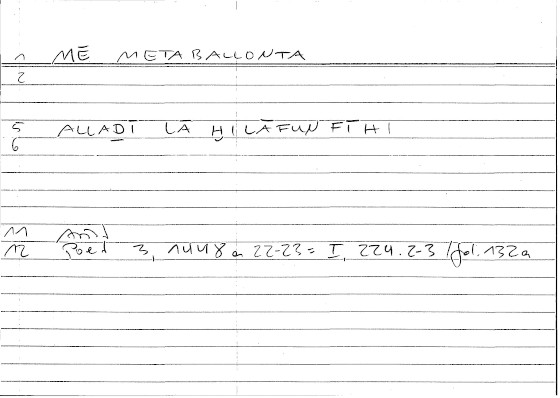 1 MĒ METABALLONTA
2
5 ALLAḎĪ LĀ ḪILĀFUN FĪHI
6
11 Arist
12 Poet 3, 1448a 22-23 = I, 224.2-3 / fol. 132a